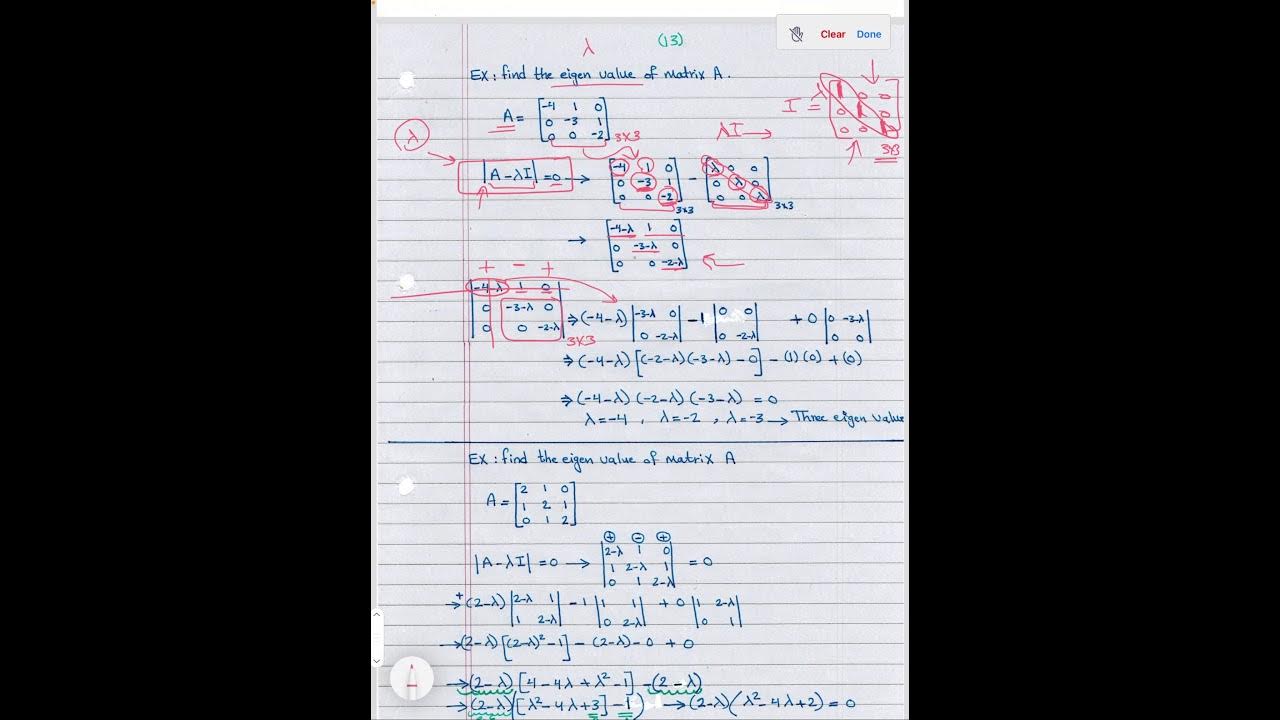 Clear Done
λ (13)
Ex: find the eigen value of matrix A.
A = [-4 1 0
0 -3 1
0 0 -2] 3x3
I = λ [1 0 0
0 1 0
0 0 1] 3x3
λ
λI →
|A-λI| = 0 → [-4 1 0
0 -3 1
0 0 -2] 3x3 - [λ 0 0
0 λ 0
0 0 λ] 3x3
→ [-4-λ 1 0
0 -3-λ 0
0 0 -2-λ]
+ - +
|-4-λ 1 0
0 -3-λ 0
0 0 -2-λ| 3x3
⇒ (-4-λ) |-3-λ 0
0 -2-λ| -1 |0 0
0 -2-λ| +0 |0 -3-λ
0 0|
⇒ (-4-λ) [(-2-λ)(-3-λ) - 0] - (1)(0) + (0)
⇒ (-4-λ) (-2-λ) (-3-λ) = 0
λ=-4 , λ=-2 , λ=-3 → Three eigen value
Ex: find the eigen value of matrix A
A = [2 1 0
1 2 1
0 1 2]
⊕ ⊖ ⊕
|A-λI| = 0 → |2-λ 1 0
1 2-λ 1
0 1 2-λ| = 0
→ + (2-λ) |2-λ 1
1 2-λ| -1 |1 1
0 2-λ| +0 |1 2-λ
0 1|
→ (2-λ) [(2-λ)² - 1] - (2-λ) - 0 + 0
→ (2-λ) [4 - 4λ + λ² - 1] - (2-λ)
→ (2-λ) ([λ² - 4λ + 3] - 1) → (2-λ) (λ² - 4λ + 2) = 0